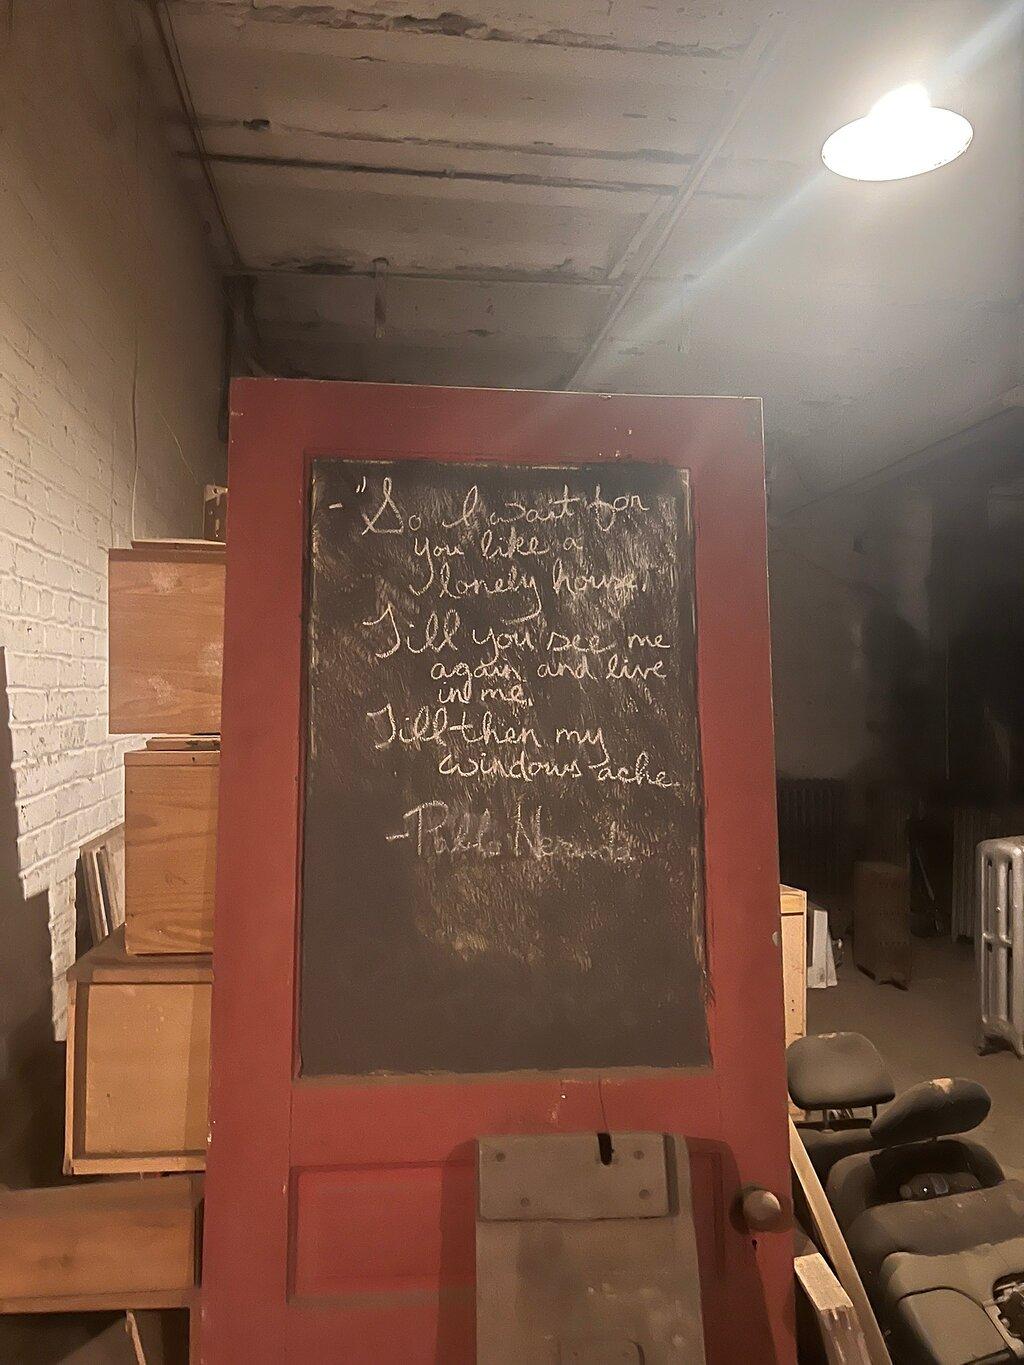 -"So I wait for
you like a
lonely house,
Till you see me
again and live
in me,
Till then my
windows ache.
-Pablo Neruda